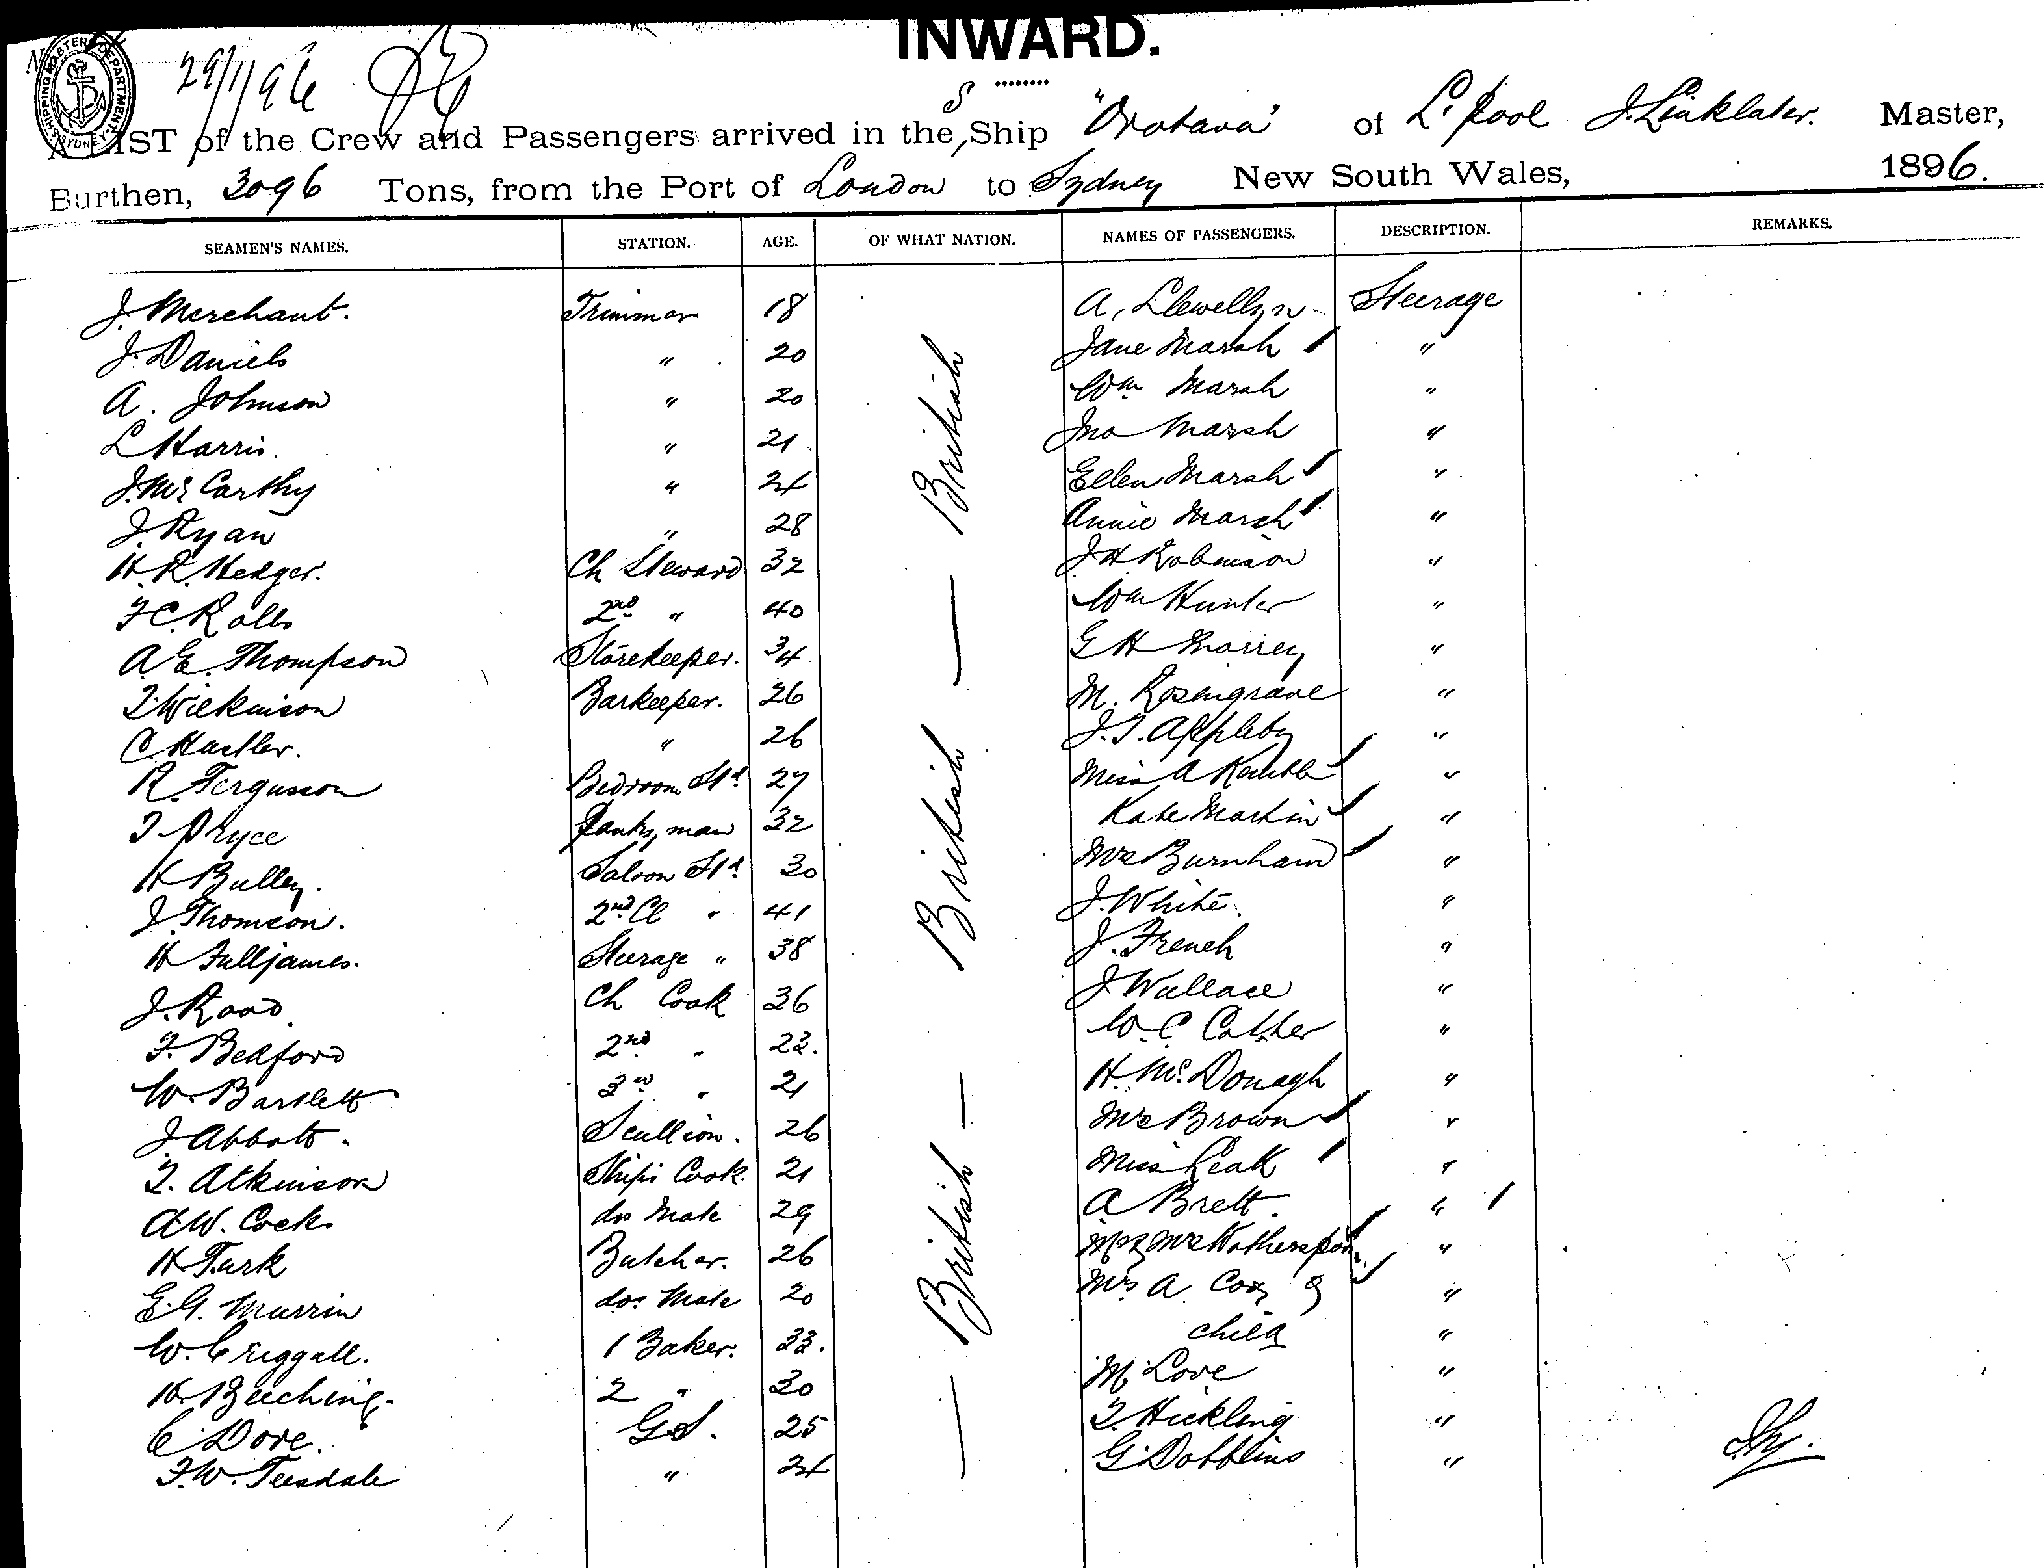 INWARD.
29/1/96
SHIPPING MASTERS DEPARTMENT SYDNEY
A LIST of the Crew and Passengers arrived in the S, Ship "Orotava" of L'pool J. Linklater. Master,
Burthen, 3096 Tons, from the Port of London to Sydney New South Wales, 1896.
SEAMEN'S NAMES. STATION. AGE. OF WHAT NATION. NAMES OF PASSENGERS. DESCRIPTION. REMARKS.
J. Merchant. Trimmer 18 British A. Llewellyn Steerage
J. Daniels " 20 Jane Marsh "
A. Johnson " 20 Wm Marsh "
L Harris. " 21 Jno Marsh "
J. McCarthy " 24 Ellen Marsh "
J. Ryan " 28 Annie Marsh "
H. R. Hedger. Ch Steward 32 J H Robinson "
F C. Rolls 2nd " 40 Wm Hunter "
A. E. Thompson Storekeeper. 34 G H "
T Wilkinson Barkeeper. 26 M. Rosengrave "
C. " 26 British J. T. Appleby "
R. Ferguson Bedroom Std 27 Miss A "
T Pryce Pantryman 32 Kate Martin "
H Bulley. Saloon Std 30 Mrs Burnham "
J. Thomson. 2nd Cl " 41 J. White. "
H Fulljames. Steerage " 38 J. French "
J. Rood Ch Cook 36 J Wallace "
F. Bedford 2nd " 23. W. C. Cather "
W. Bartlett 3rd " 21 H. McDonagh "
J. Abbott. Scullion. 26 Mrs Brown "
T. Atkinson Ships Cook. 21 British Miss Leak "
A W. Cocks do Mate 29 A Brett. "
H Turk Butcher. 26 "
E. G. Murrin do. Mate 20 Mrs A. Cox & "
W. Criggall. 1 Baker. 33. child "
H. Beeching. 2 " 30 M. Love "
C. Dore. G. S. 25 T. Hickling "
F. W. Teesdale " 24 G. Dobblins "